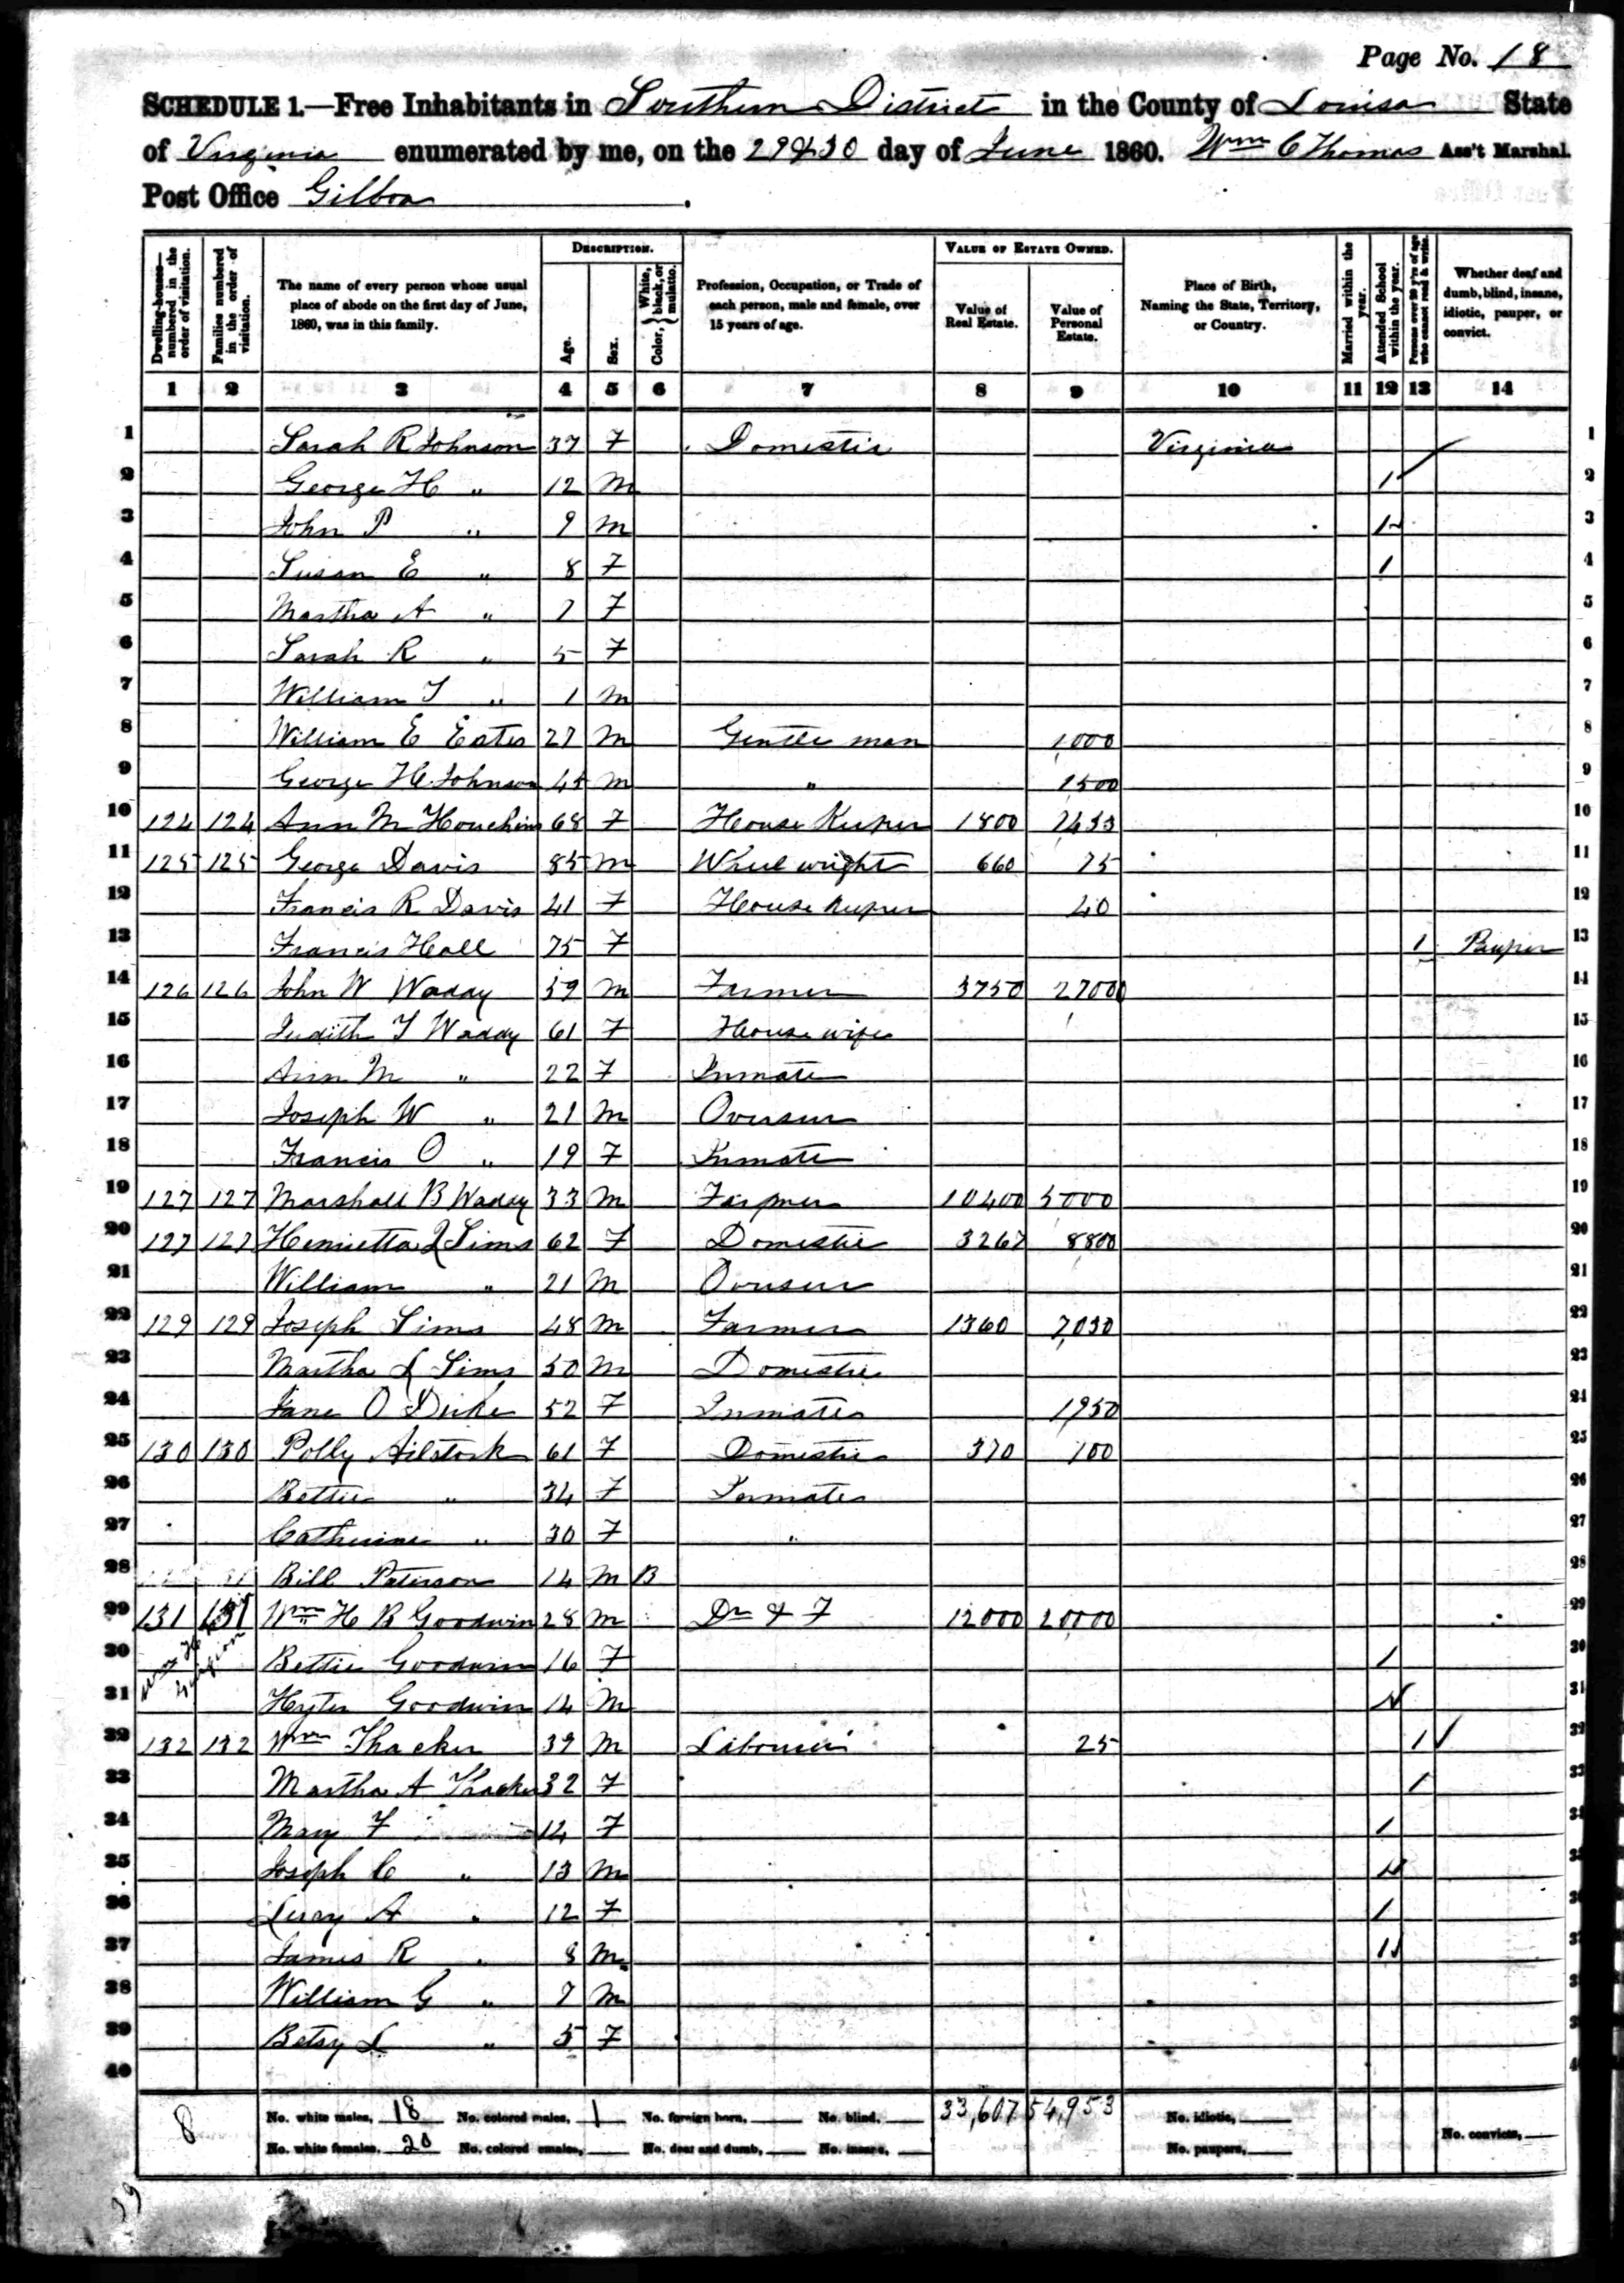 Page No. 18
SCHEDULE 1.—Free Inhabitants in Southern District in the County of Louisa State
of Virginia enumerated by me, on the 29 & 30 day of June 1860. Wm C Thomas Ass't Marshal.
Post Office Gilboa .
Dwelling-houses—numbered in the order of visitation.
Families numbered in the order of visitation.
The name of every person whose usual place of abode on the first day of June, 1860, was in this family.
DESCRIPTION.
Age.
Sex.
Color, { White, black, or mulatto.
Profession, Occupation, or Trade of each person, male and female, over 15 years of age.
VALUE OF ESTATE OWNED.
Value of Real Estate.
Value of Personal Estate.
Place of Birth, Naming the State, Territory, or Country.
Married within the year.
Attended School within the year.
Persons over 20 y'rs of age who cannot read & write.
Whether deaf and dumb, blind, insane, idiotic, pauper, or convict.
1 2 3 4 5 6 7 8 9 10 11 12 13 14
1 Sarah R Johnson 37 F Domestic Virginia 1
2 George H " 12 M 1 2
3 John P " 9 M 1 3
4 Susan E " 8 F 1 4
5 Martha A " 7 F 5
6 Sarah R " 5 F 6
7 William T " 1 M 7
8 William E Estes 27 M Gentle man 1000 8
9 George H Johnson 45 M " 1500 9
10 124 124 Ann M Houchins 68 F House Keeper 1800 10
11 125 125 George Davis 85 M Wheel wright 660 75 11
12 Francis R Davis 41 F House Keeper 40 12
13 Francis Hall 75 F 1 Pauper 13
14 126 126 John W Waddy 59 M Farmer 5750 27000 14
15 Judith T Waddy 61 F House wife 15
16 Ann M " 22 F Inmate 16
17 Joseph W " 21 M Overseer 17
18 Francis O " 19 F Inmate 18
19 127 127 Marshall B Waddy 33 M Farmer 10400 5000 19
20 127 127 Henrietta Sims 62 F Domestic 3267 8800 20
21 William " 21 M Overseer 21
22 129 129 Joseph Sims 48 M Farmer 1360 7030 22
23 Martha L Sims 50 M Domestic 23
24 Jane O Duke 52 F Inmate 1950 24
25 130 130 Polly Ailstock 61 F Domestic 370 100 25
26 Bettie " 34 F Inmate 26
27 Catherine " 30 F " 27
28 Bill Paterson 14 M B 28
29 131 131 Wm H B Goodwin 28 M Dr & F 12000 20000 29
30 Bettie Goodwin 16 F 1 30
31 Hyter Goodwin 14 M 1 31
32 132 132 Wm Thacker 39 M Labourer 25 1 32
33 Martha A Thacker 32 F 1 33
34 Mary F 14 F 1 34
35 Joseph C " 13 M 1 35
36 A " 12 F 1 36
37 James R " 8 M 1 37
38 William G " 7 M 38
39 Betsy L " 5 F 39
40
8 No. white males, 18 No. colored males, 1 No. foreign born, No. blind, 33,607 54,953 No. idiotic,
No. white females, 20 No. colored females, No. deaf and dumb, No. insane, No. paupers, No. convicts,
39